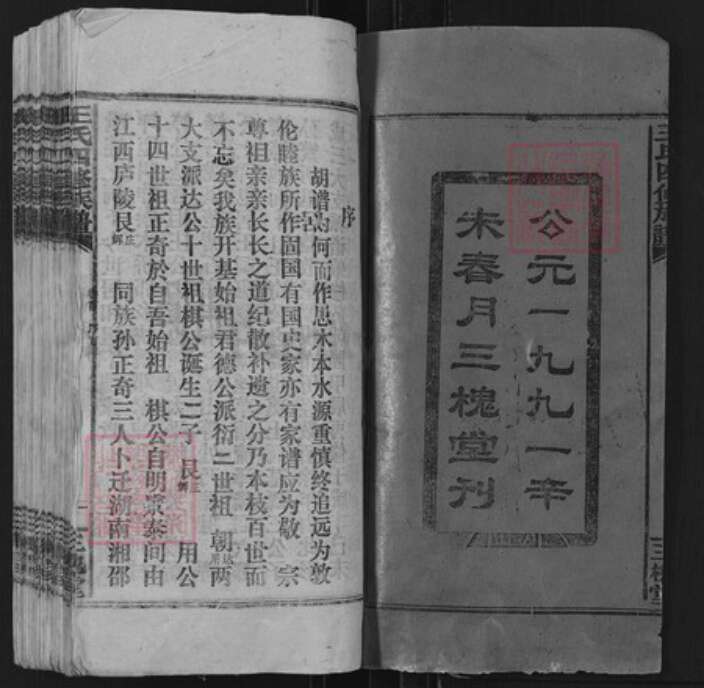 公元一九九一辛
未春月三槐堂刊
三槐堂
序
胡谱为何而作思木本水源重慎终追远为敦
伦睦族所作固国有国史家亦有家谱应为敬 宗
尊祖亲亲长长之道纪散补遗之分乃本枝百世而
不忘矣我族开基始祖君德公派衍二世祖 朝 两
大支派达公十世祖棋公诞生二子 艮 用公
十四世祖正奇於自吾始祖 棋公自明景泰间由
江西庐陵艮 同族孙正奇三人卜迁湖南湘邵
王氏四修族谱